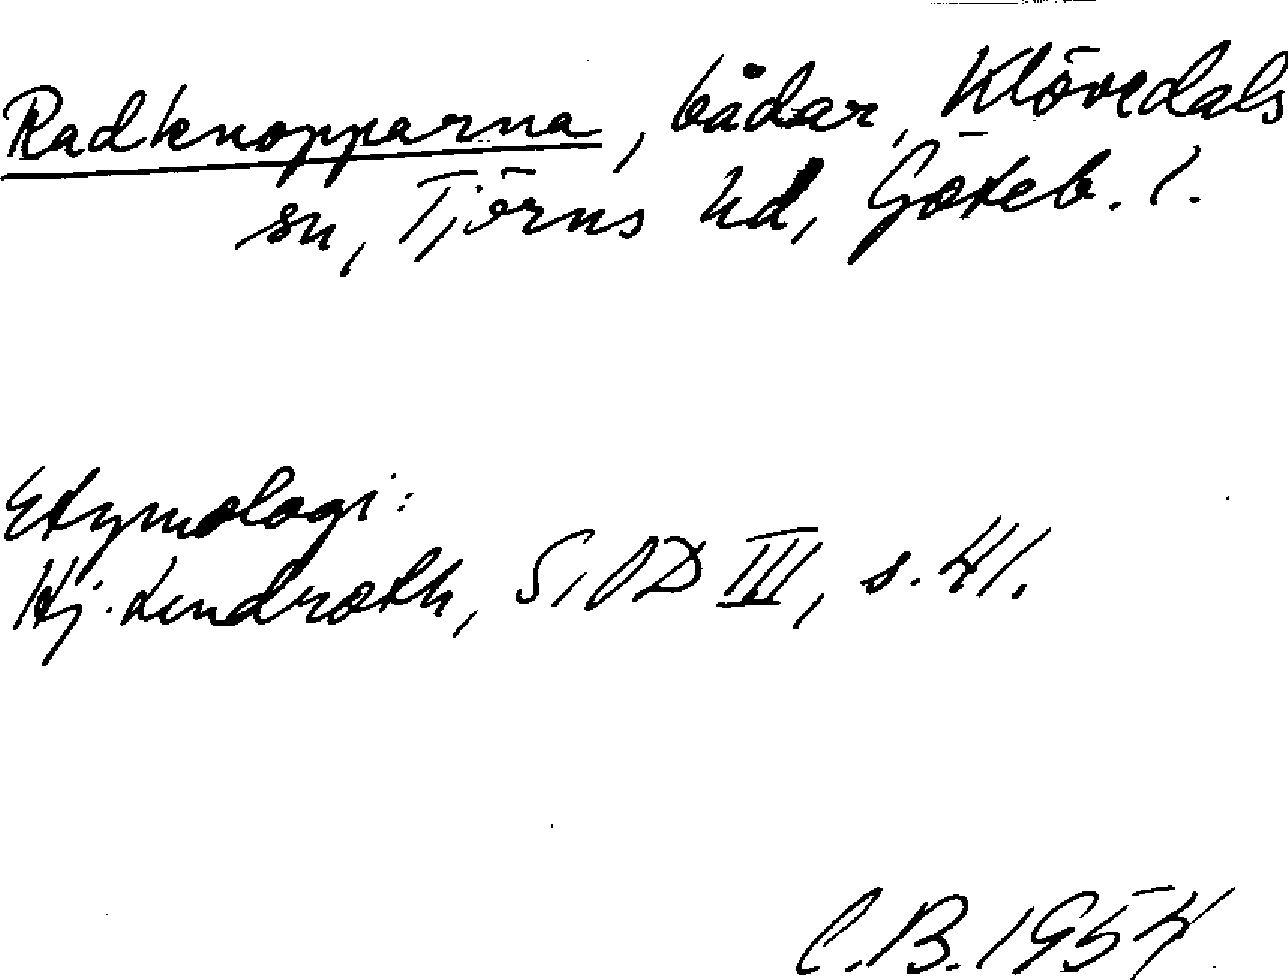 Radknopparna, bådar, Klövedals
sn, Tjörns hd, Göteb. l.
Etymologi:
Hj. Lindroth, SIOD III, s. 41.
C.B. 1954